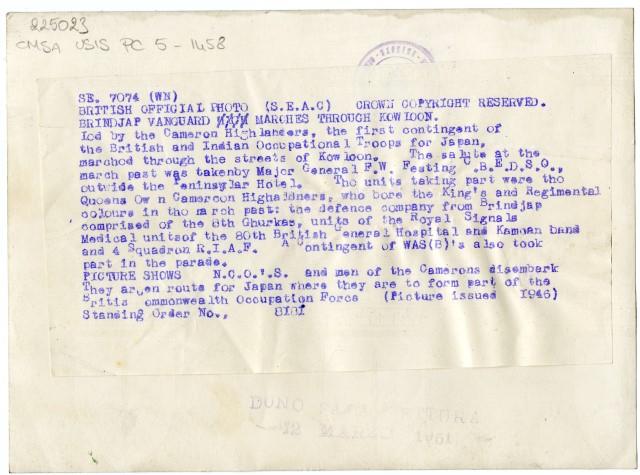 225023
CMSA USIS PC 5 - 1458
SE. 7074 (WN)
BRITISH OFFICIAL PHOTO (S.E.A.C) CROWN COPYRIGHT RESERVED.
BRINDJAP VANGUARD MARCHES THROUGH KOWLOON.
Led by the Cameron Highlanders, the first contingent of
the British and Indian Occupational Troops for Japan,
marched through the streets of Kowloon. The salute at the
march past was takenby Major General F.W. Festing .B.E.D.S.O.,
outside the Peninsylar Hotel. The units taking part were the
Queens Ow n Camercon Highaldners, who bore the King's and Regimental
colours in tho march past: the defence company from Brindjap
comprised of the 8th Ghurkas, units of the Royal Signals
Medical unitsof the 80th British General Hospital and Kamoan band
and 4 Squadron R.I.A.F. A Contingent of WAS(B)'s also took
part in the parade.
PICTURE SHOWS N.C.O.'S. and men of the Camerons disembark
They aren route for Japan where they are to form part of the
Britis ommonwealth Occupation Force (Picture issued 1946)
Standing Order No., 8181